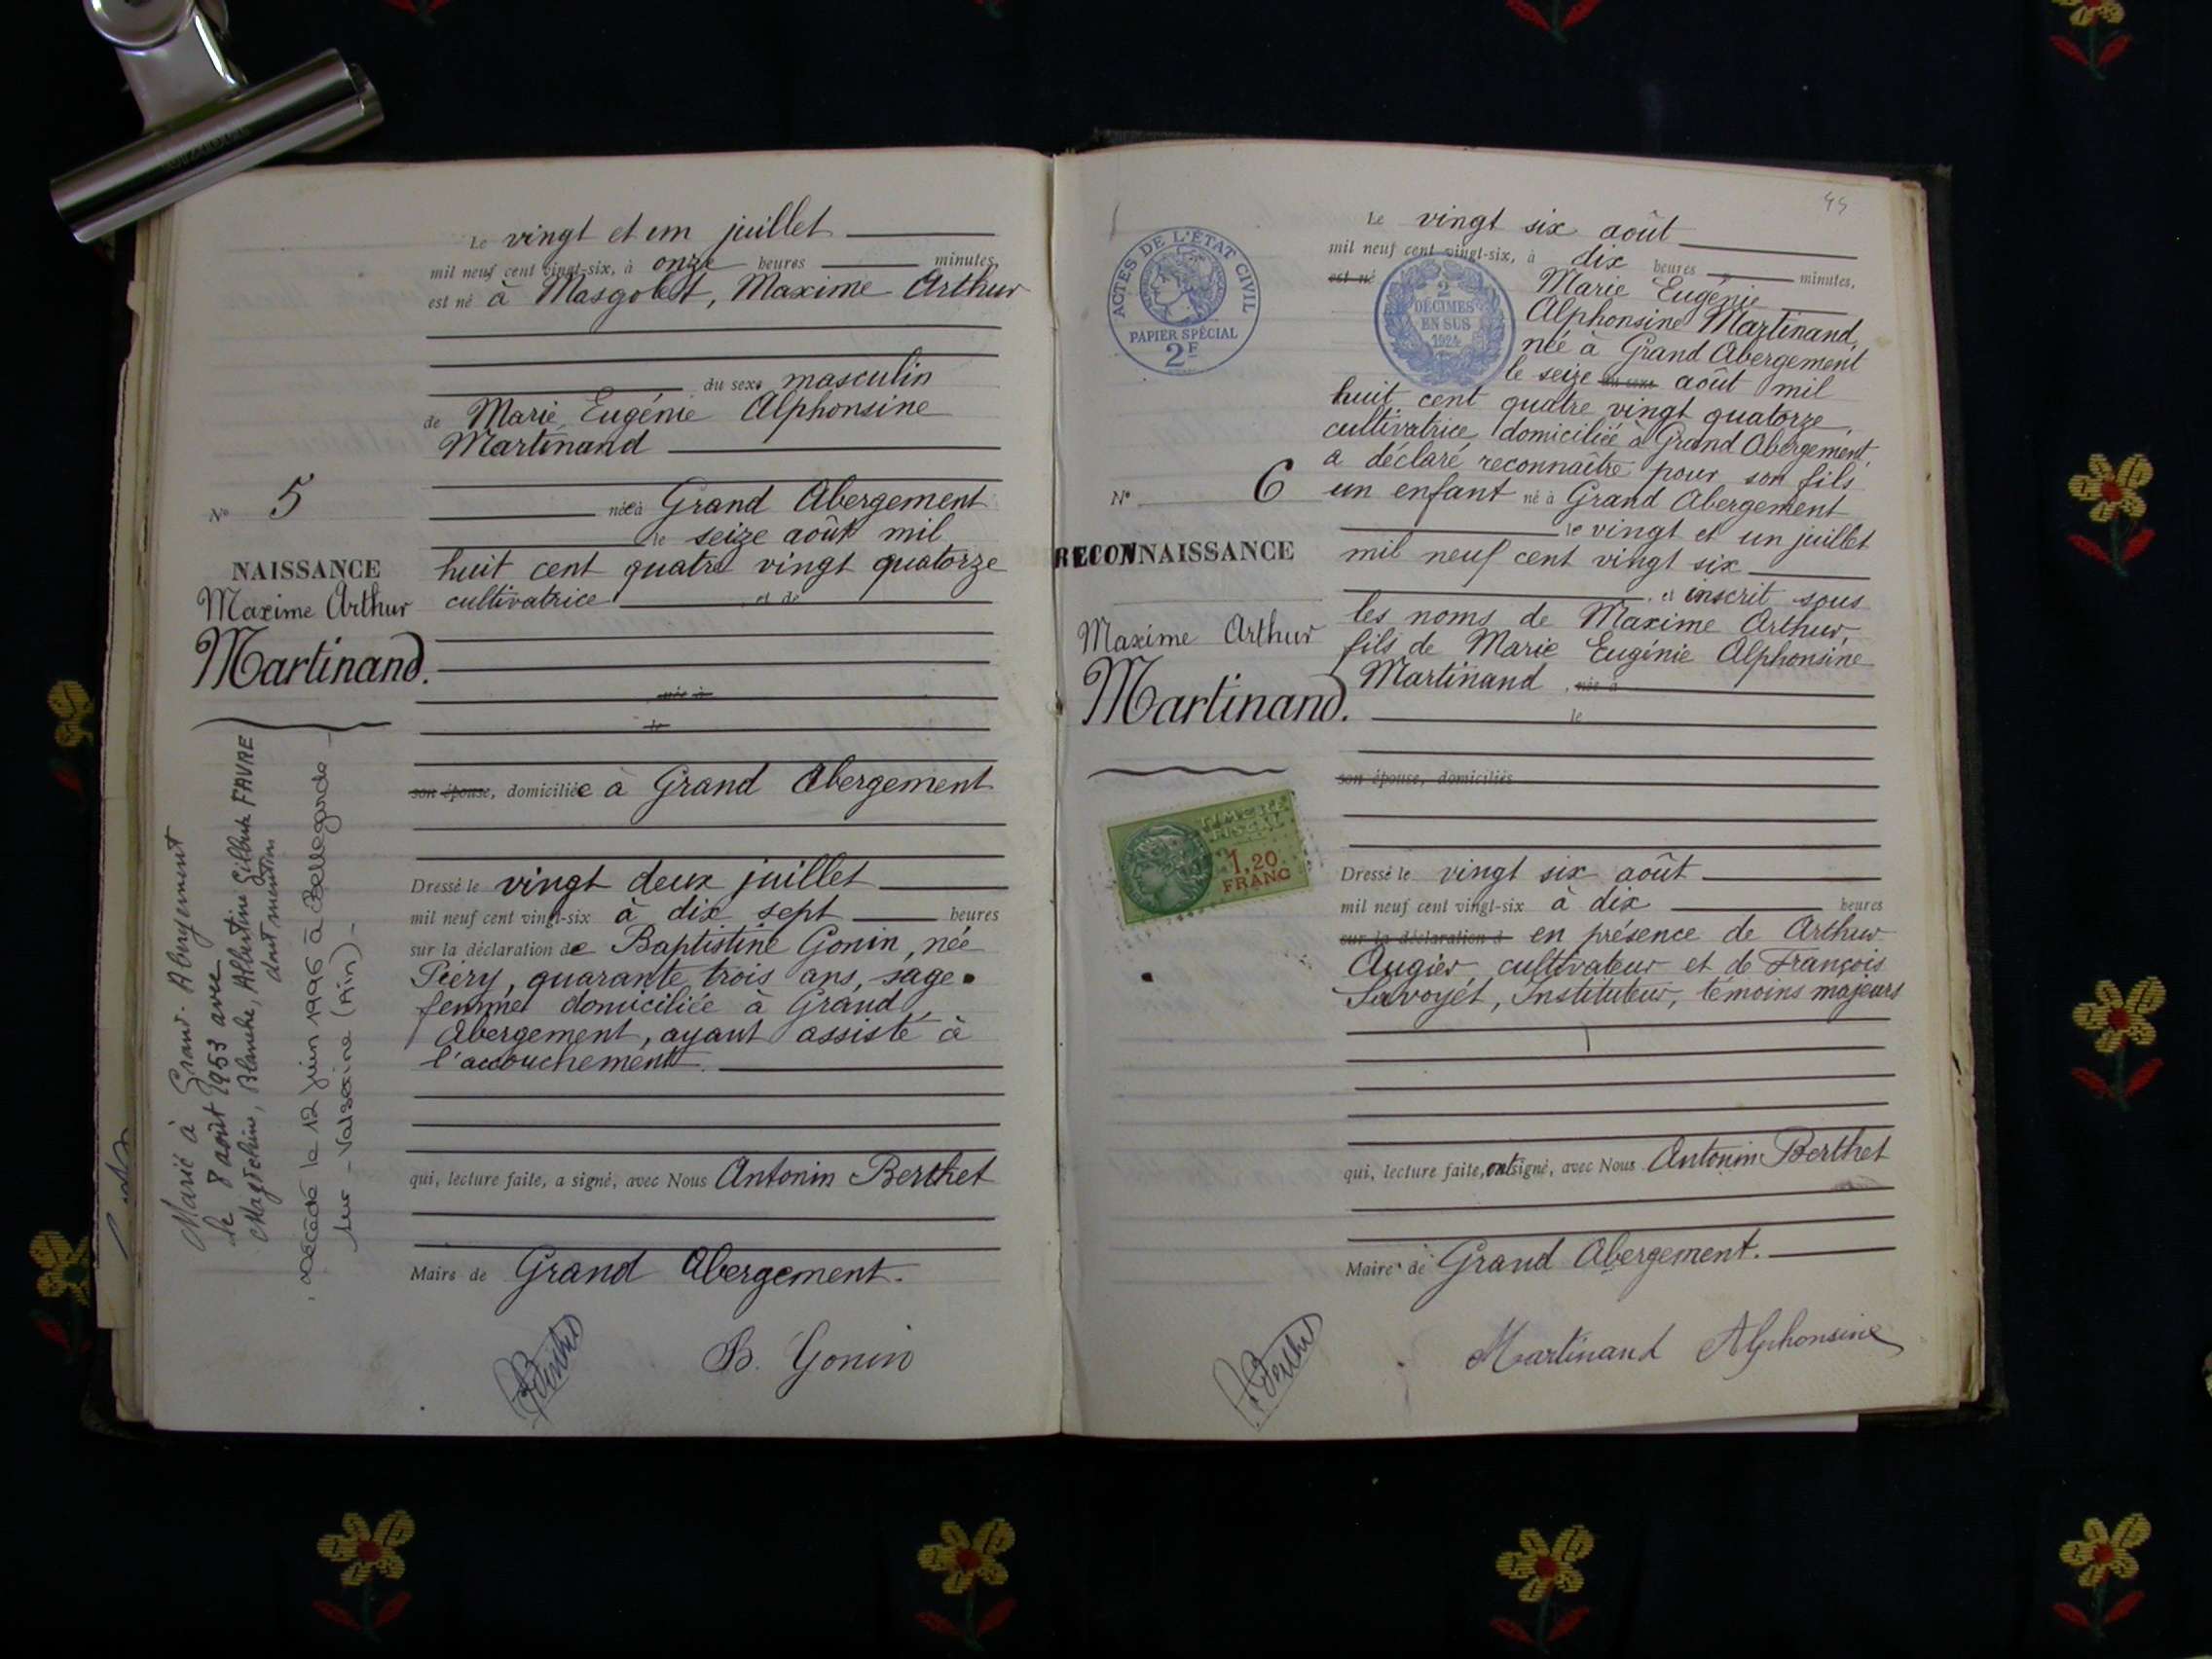 Le vingt et un juillet
mil neuf cent vingt-six, à onze heures minutes,
est né à Masgolet, Maxime Arthur
du sexe masculin
de Marie Eugénie Alphonsine
Martinand
née à Grand Abergement
le seize août mil
huit cent quatre vingt quatorze
cultivatrice et de
née à
le
son épouse, domiciliée à Grand Abergement
Dressé le vingt deux juillet
mil neuf cent vingt-six à dix sept heures
sur la déclaration de Baptistine Gonin, née
Péery, quarante trois ans, sage-
femme domiciliée à Grand
Abergement, ayant assisté à
l'accouchement.
qui, lecture faite, a signé, avec Nous Antonin Berthet
Maire de Grand Abergement.
Berthet
B. Gonin
N° 5
NAISSANCE
Maxime Arthur
Martinand.
Marié à Grand-Abergement
le 8 août 1953 avec
Blanche, Albertine Gilberte FAVRE
dont mention
Décédé le 12 juin 1996 à Bellegarde
sur - Valserine (Ain) -
ACTES DE L'ÉTAT CIVIL
PAPIER SPÉCIAL
2F
2
DÉCIMES
EN SUS
1924
Le vingt six août
mil neuf cent vingt-six, à dix heures minutes,
est né Marie Eugénie
Alphonsine Martinand,
née à Grand Abergement
le seize du sexe août mil
huit cent quatre vingt quatorze,
cultivatrice, domiciliée à Grand Abergement,
a déclaré reconnaître pour son fils
un enfant né à Grand Abergement
le vingt et un juillet
mil neuf cent vingt six
et inscrit sous
les noms de Maxime Arthur,
fils de Marie Eugénie Alphonsine
Martinand, née à
le
son épouse, domiciliés
Dressé le vingt six août
mil neuf cent vingt-six à dix heures
sur la déclaration d en présence de Arthur
Augier, cultivateur et de François
Savoyet, Instituteur, témoins majeurs
qui, lecture faite, ont signé, avec Nous Antonin Berthet
Maire de Grand Abergement.
Berthet
Martinand Alphonsine
N° 6
RECONNAISSANCE
Maxime Arthur
Martinand.
TIMBRE
FISCAL
1,20
FRANC